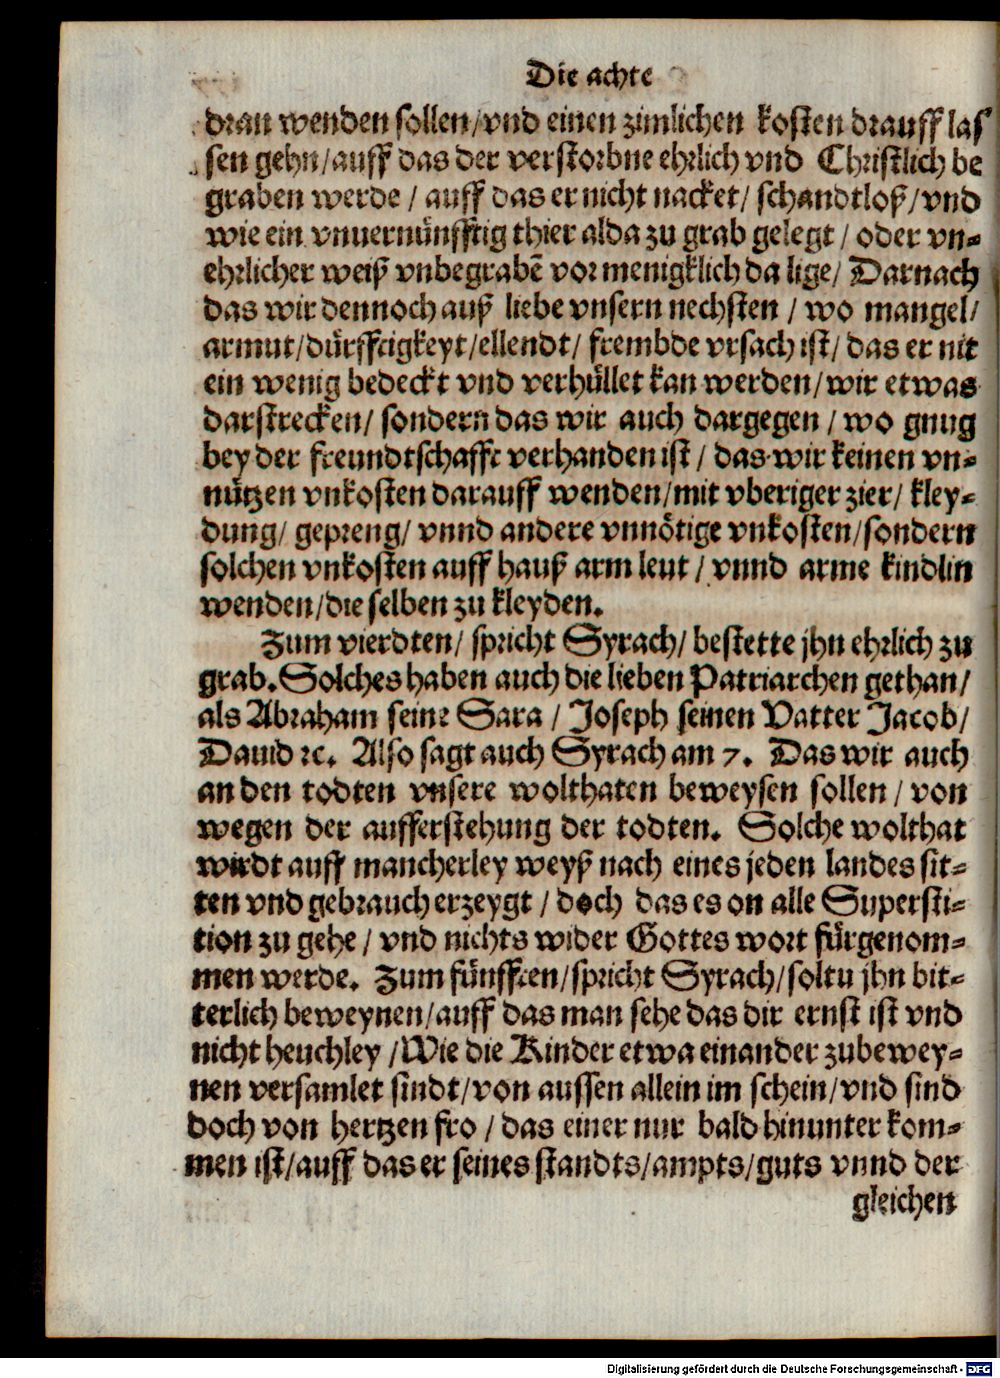 Die achte
dran wenden sollen/vnd einen zimlichen kosten drauff las
sen gehn/auff das der verstorbne ehrlich vnd Christlich be
graben werde / auff das er nicht nacket/ schandtloß/vnd
wie ein vnuernünfftig thier alda zu grab gelegt / oder vn-
ehrlicher weiß vnbegrabē vor menigklich da lige/ Darnach
das wir dennoch auß liebe vnsern nechsten / wo mangel/
armut/dürfftigkeyt/ellendt/ frembde vrsach ist/ das er nit
ein wenig bedeckt vnd verhüllet kan werden/wir etwas
darstrecken/ sondern das wir auch dargegen / wo gnug
bey der freundtschafft verhanden ist / das wir keinen vn-
nützen vnkosten darauff wenden/mit vberiger zier/ kley-
dung/ gepreng/ vnnd andere vnnötige vnkosten/sondern
solchen vnkosten auff hauß arm leut / vnnd arme kindlin
wenden/die selben zu kleyden.
Zum vierdten/ spricht Syrach/ bestette jhn ehrlich zu
grab. Solches haben auch die lieben Patriarchen gethan/
als Abraham seine Sara / Joseph seinen Vatter Jacob/
Dauid ꝛc. Also sagt auch Syrach am 7. Das wir auch
an den todten vnsere wolthaten beweysen sollen / von
wegen der aufferstehung der todten. Solche wolthat
wirdt auff mancherley weyß nach eines jeden landes sit-
ten vnd gebrauch erzeygt / doch das es on alle Supersti-
tion zu gehe / vnd nichts wider Gottes wort fürgenom-
men werde. Zum fünfften/spricht Syrach/soltu jhn bit-
terlich beweynen/auff das man sehe das dir ernst ist vnd
nicht heuchley /Wie die Kinder etwa einander zubewey-
nen versamlet sindt/von aussen allein im schein/vnd sind
doch von hertzen fro / das einer nur bald hinunter kom-
men ist/auff das er seines standts/ampts/guts vnnd der
gleichen
Digitalisierung gefördert durch die Deutsche Forschungsgemeinschaft - DFG